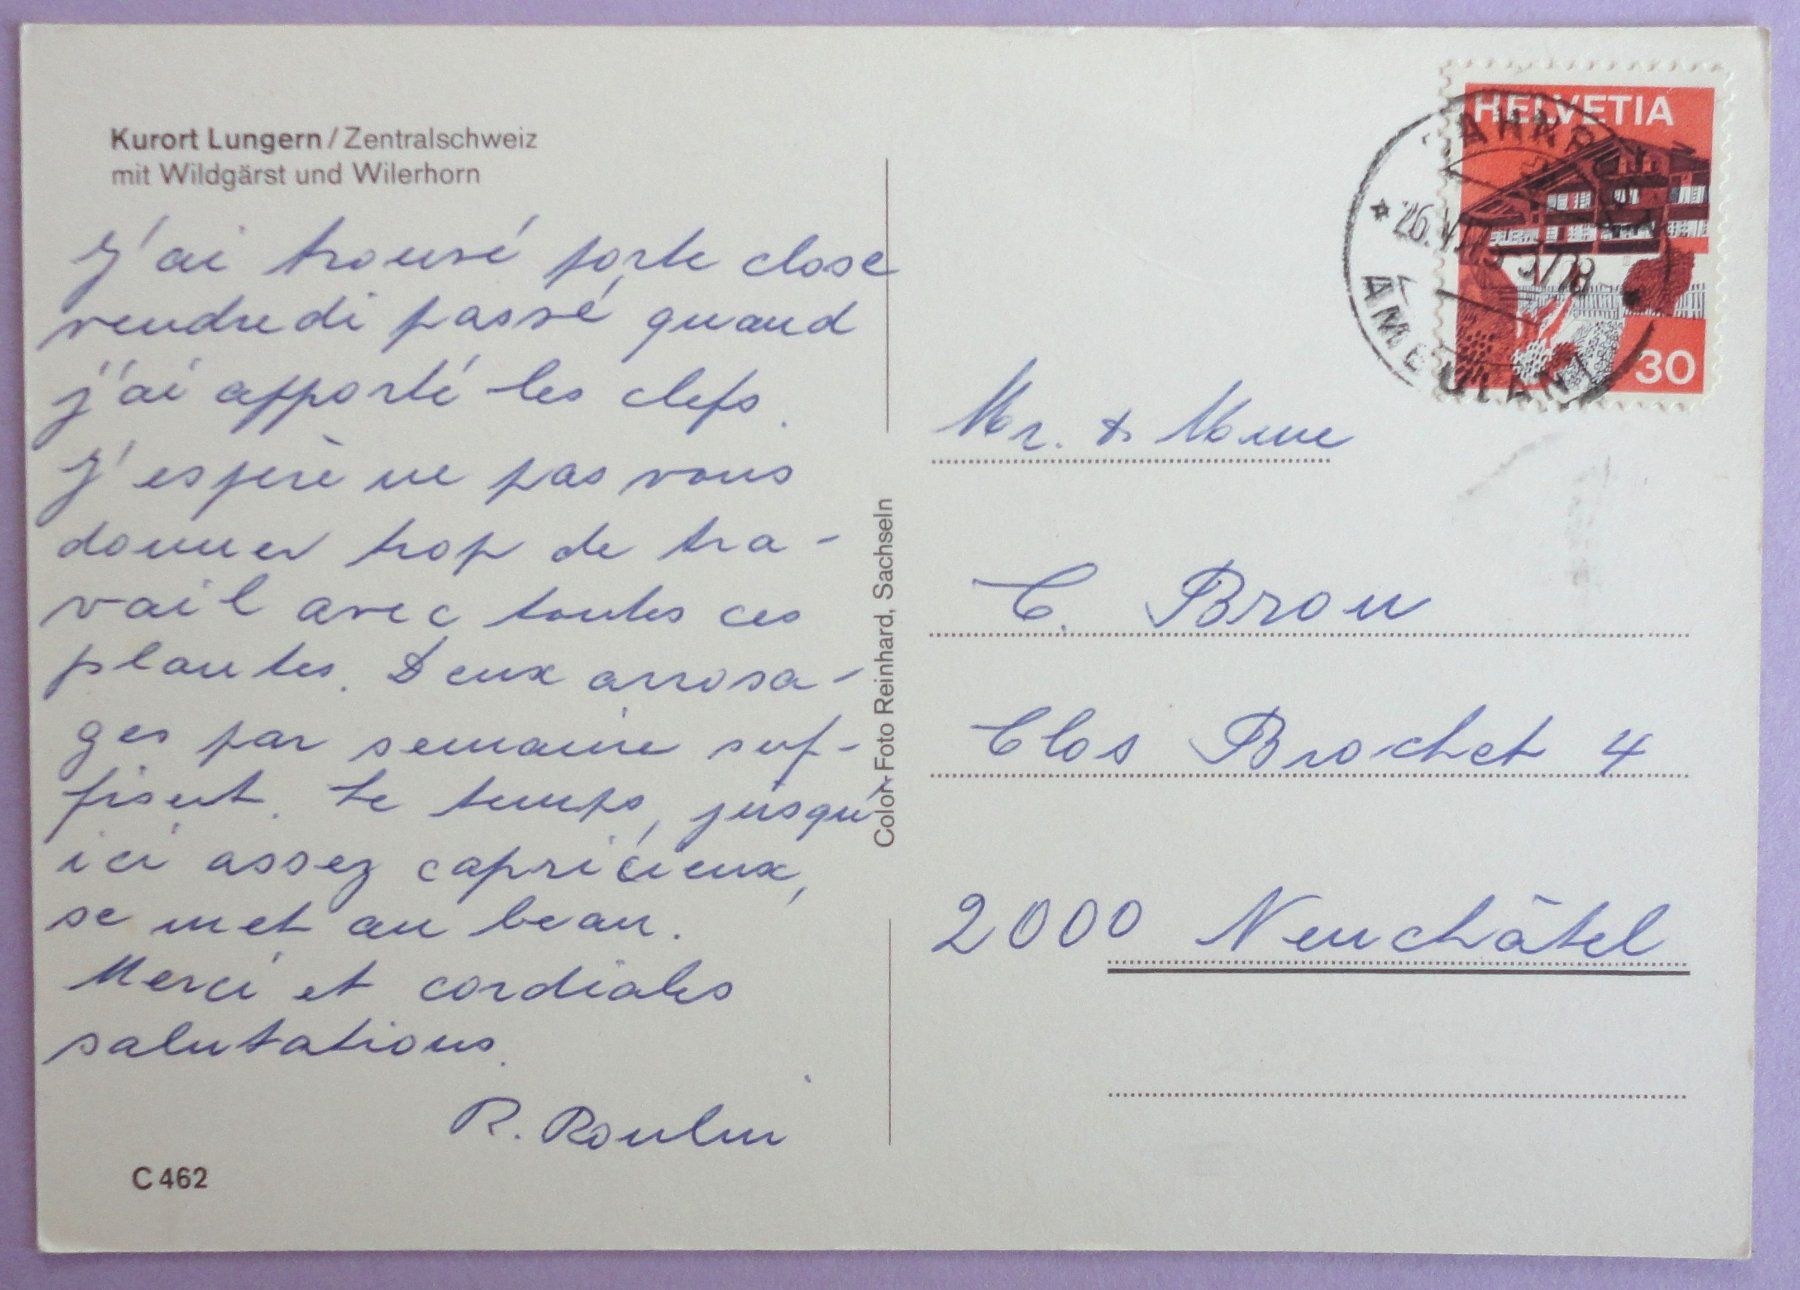 Kurort Lungern / Zentralschweiz
mit Wildgärst und Wilerhorn
J'ai trouvé porte close
vendredi passé quand
j'ai apporté les clefs.
J'espère ne pas vous
donner trop de tra-
vail avec toutes ces
plantes. Deux arrosa-
ges par semaine suf-
fisent. Le temps, jusqu'
ici assez capricieux,
se met au beau.
Merci et cordiales
salutations.
R. Roulin
C 462
Color-Foto Reinhard, Sachseln
HELVETIA
30
AMBULANT
Mr. & Mme
C. Brou
Clos Brochet 4
2000 Neuchâtel